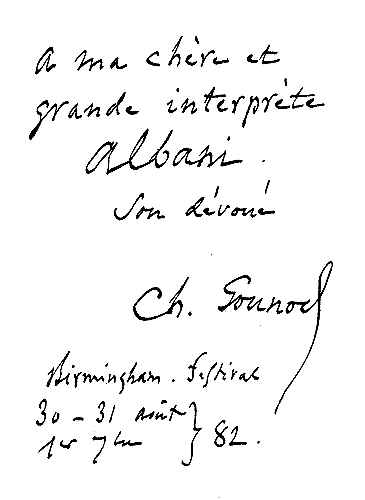 A ma chère et
grande interprète
Albani.
Son dévoué
Ch. Gounod
Birmingham. Festival
30 - 31 août
1er 7bre } 82.